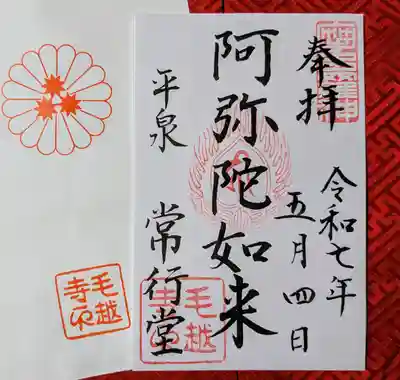 奉拝
令和七年
五月四日
阿弥陀如来
平泉
常行堂
毛越
寺印
毛越
寺印